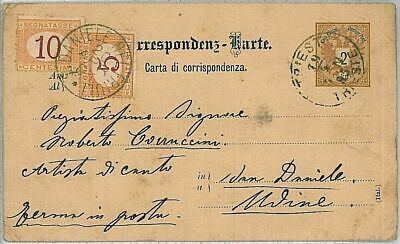 Correspondenz-Karte.
Carta di corrispondenza.
10
SEGNATASSE
5
2
TRIEST
Pregiatissimo Signore
Roberto
Artista di canto
in San Daniele
Udine
Ferma in posta
(Ital.)